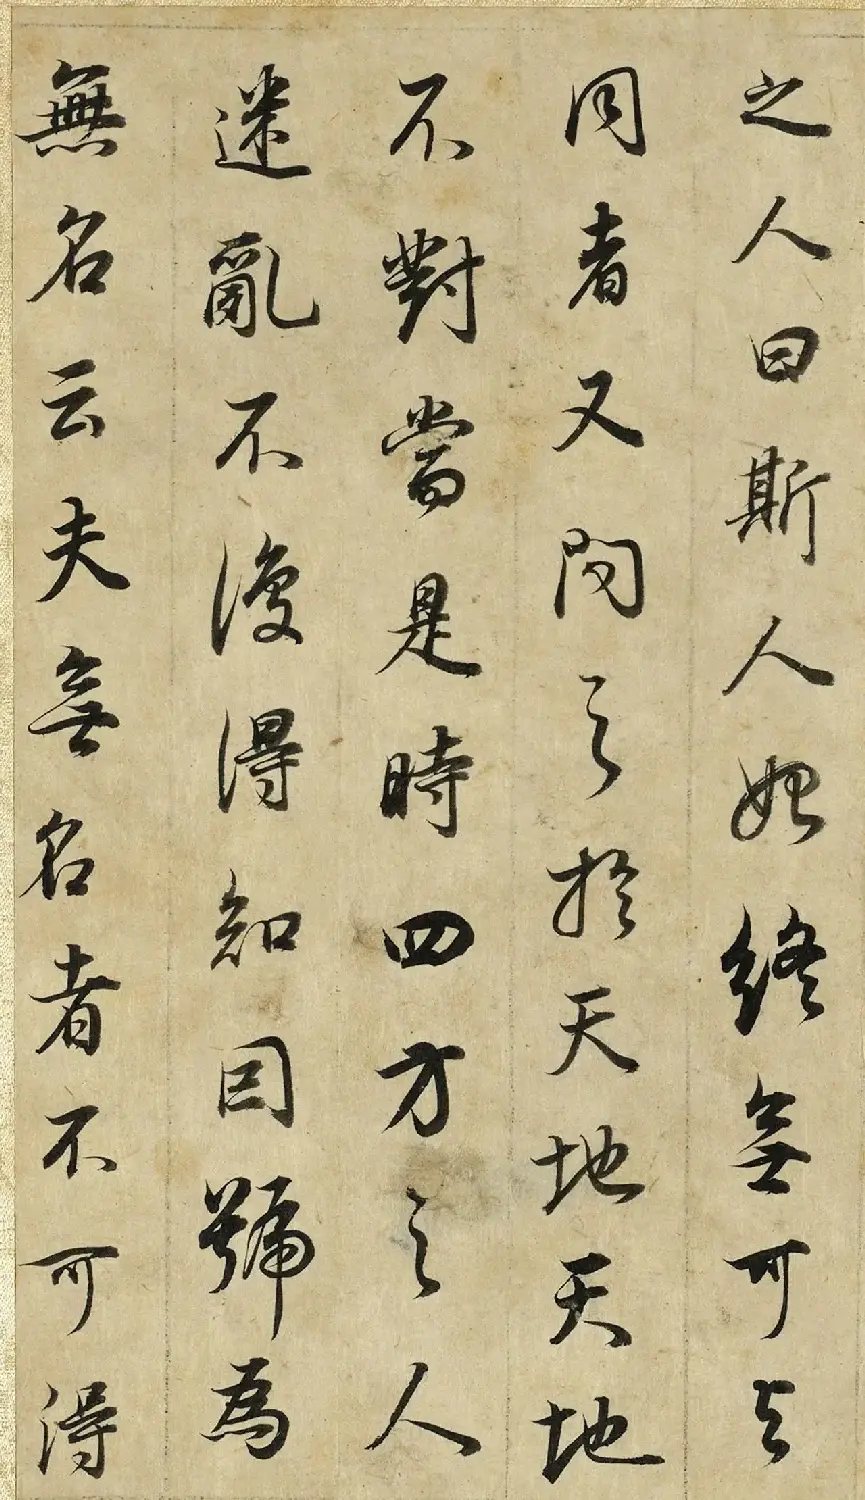 之人曰斯人始終無可与
同者又問之於天地天地
不對當是時四方之人
迷亂不復得知因號為
無名云夫無名者不可得